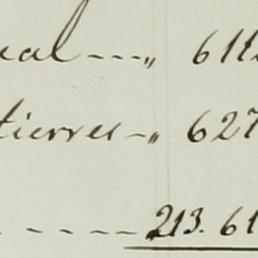 ual ---„ 611
tierres -„ 627
----- 213.61